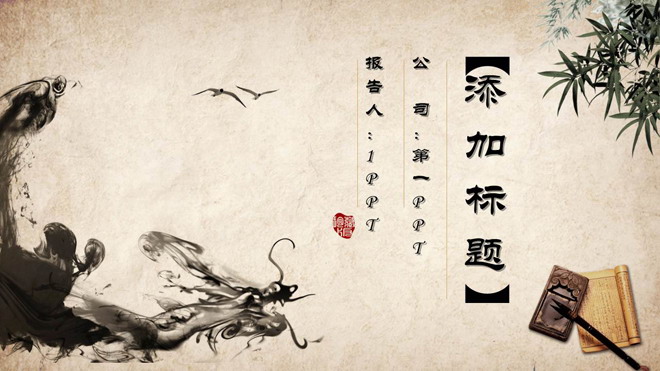 添加标题
公 司：第一PPT
报告人：1PPT